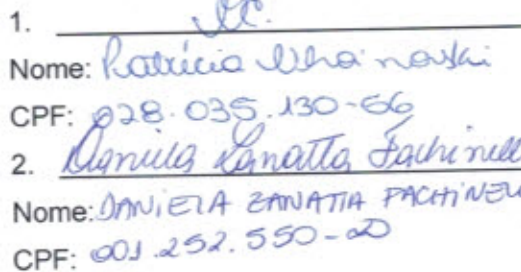 1.
Nome: Patrícia
CPF: 028.035.130-66
2. Daniela Zanatta Fachinell
Nome: DANIELA ZANATTA FACHINELL
CPF: 001.252.550-20